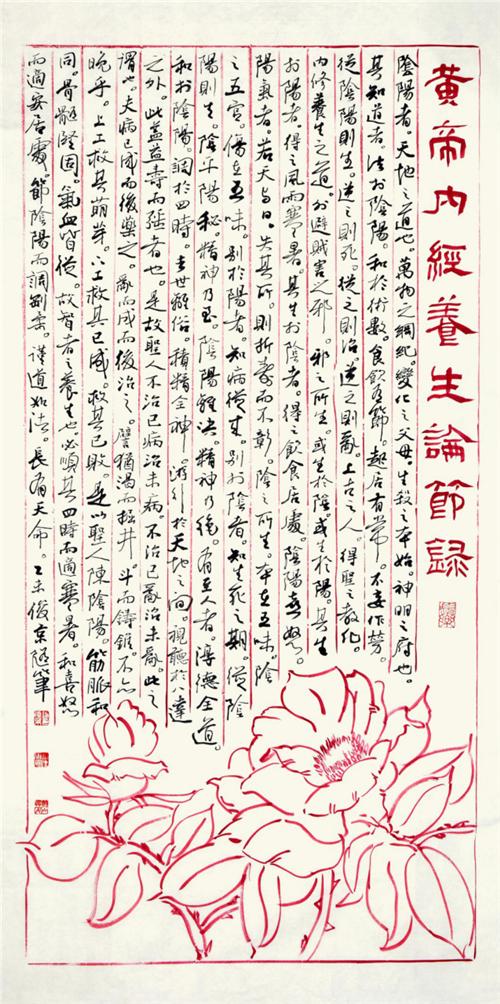 黃帝內經養生論節錄
陰陽者。天地之道也。萬物之綱紀。變化之父母。生殺之本始。神明之府也。
其知道者。法於陰陽。和於術數。食飲有節。起居有常。不妄作勞。
從陰陽則生。逆之則死。從之則治。逆之則亂。上古之人。得聖之教化。
內修養生之道。外避賊害之邪。邪之所生。或生於陰或生於陽。其生
於陽者。得之風雨寒暑。其生於陰者。得之飲食居處。陰陽喜怒。
陽氣者。若天與日。失其所。則折壽而不彰。陰之所生。本在五味。陰
之五宮。傷在五味。別於陽者。知病從來。別於陰者。知生死之期。從陰
陽則生。陰平陽秘。精神乃至。陰陽離決。精神乃絕。有至者。淳德全道。
和於陰陽。調於四時。去世離俗。積精全神。游行於天地之間。視聽於八達
之外。此蓋益壽而強者也。是故聖人不治已病治未病。不治已亂治未亂。此之
謂也。夫病已成而後藥之。亂而成而後治之。譬猶渴而掘井。斗而鑄錐。不亦
晚乎。上工救其萌芽。下工救其已成。救其已敗。是以聖人陳陰陽。筋脈和
同。骨髓堅固。氣血皆從。故智者之養生也必順其四時而適寒暑。和喜怒
而適安居處。節陰陽而調剛柔。謹道如法。長有天命。乙未俊筆